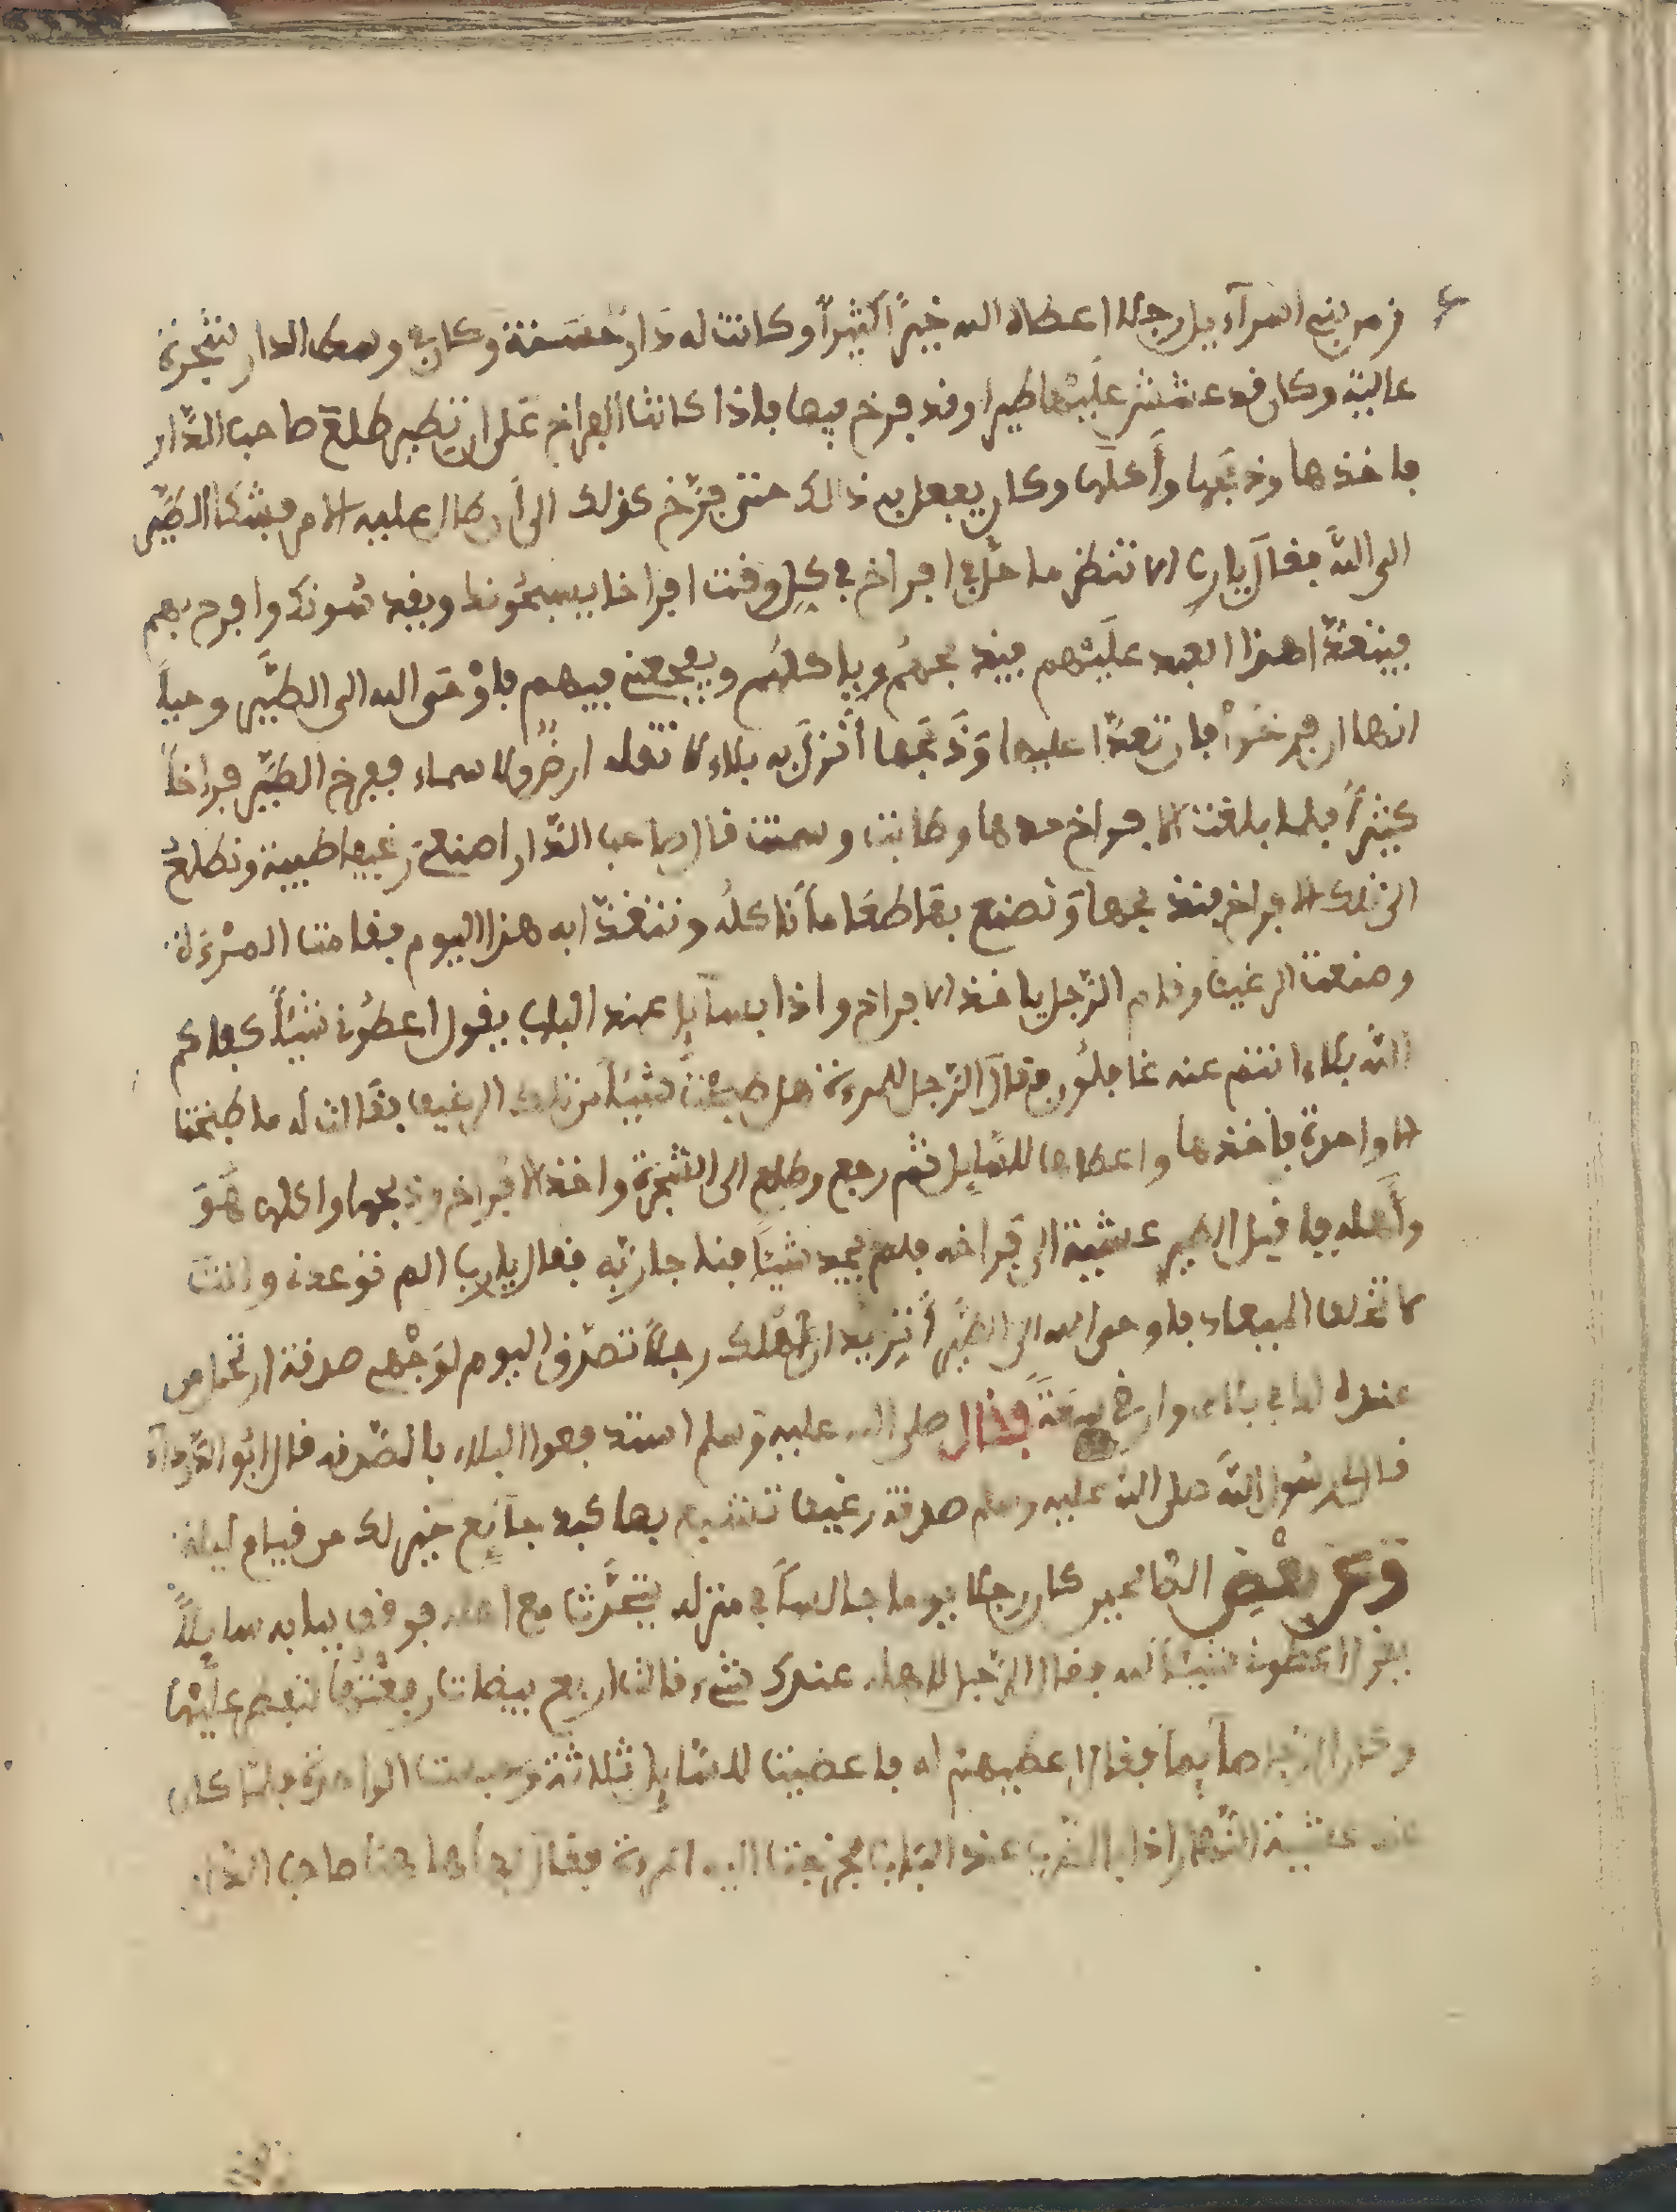 زمن بني اسرآءيل رجلا اعطاه الله خيرًا كثيرًا وكانت له دَارٌ حَسَنة وكان في وسط الدار شجرة
عالية وكان قد عشش عليْها طيرا وقد فرخ فيها فاذا كانت الفراخ عَلى ان تطير طلعَ صاحب الدَّار
فاخذها وذبَحها وأَكلَها وكان يفعل به ذالك حتى فرَّخ كذلك الى أن طال عليه الامر فشكا الطيْر
الى اللَّه فقالَ يا ربِ الا تنظر ما حلّ في افراخ في كلِ وقت افراخا يسبحُونك ويقدسُونك وافرح بهم
فيتعدَّا هذا العبد عليْهم فيذبحهُم وياكلهُم ويفجعني فيهم فاوْحَى الله الى الطيَّر وحياً
انها ان فرخَواْ فان تعدَّا عليها وَذَبَحها أنزل به بلاء لا تقله ارضٌ ولا سماء ففرخ الطيَّر فراخاً
كثيراً فلما بلغت الافراخ حدها وطابت وسمنت قال صاحب الدَّار اصنعي رغيفا طيبة ونطلعُ
الى تلك الافراخ فنذبحها وَنصنع بهَا طعَاماً نَاكلُه ونتغدَّا به هذا اليوم فقامت المرْءَة
وصنعت الرغيف وقام الرّجل ياخذ الافراخ واذا بسآيل عند الباب يقول اعطُونِ شيئاً كفاكم
اللَّه بلاء انتم عنه غافلُون فقالَ الرّجل للمرءة هل طبخْت شيئاً من تلك الرغيف فقَالت له ما طبخت
الا واحدة فاخذها واعطاها للسَّايل ثم رجع وطلع الى الشجرة واخذ الافراخ وذبحها واكلها هُوَ
وأَهله فاقبل الطير عشية الى فَراخه فلم يجد شيئاً منها جارّيَه فقال يا رب الم توعدن وانت
لا تخلف الميعاد فاوحى الله الى الطيَّر أَتريد ان أُهلك رجلاً تصدّق اليوم لوَجْهي صدقة ان تخلص
عنده لها في بلاء وان في سِعَةً فقال صلى الله عليه وَسلم استدفعوا البلاء بالصَّدقة قال ابُو الدَّرداء
قال رسُول اللَّه صلى اللَّه عليه وسلم صدقة رغيف تشبع بها كبد جآئع خير لك من قيام ليلة
وَعَن بَعْضِ الصَّالحين كان رجلا يوما جالساً في منزله يتحدَّث مع اهله فوقف ببابه سايلاً
يقول اعطون شيئاً لله فقال الرّجل لاهله عندك شيء قالت اربع بيضات رفعْتُها تفطر عليْها
وكان الرّجل صآيماً فقال اعطيهم له فاعطيت للسَّايل ثلاثة وحبست الواحدة فلما كان
عند عشية النَّهار اذا بالضَّرب عند الباب فخرجت اليه امرءة فقال لها هنا صاحب الدَّار